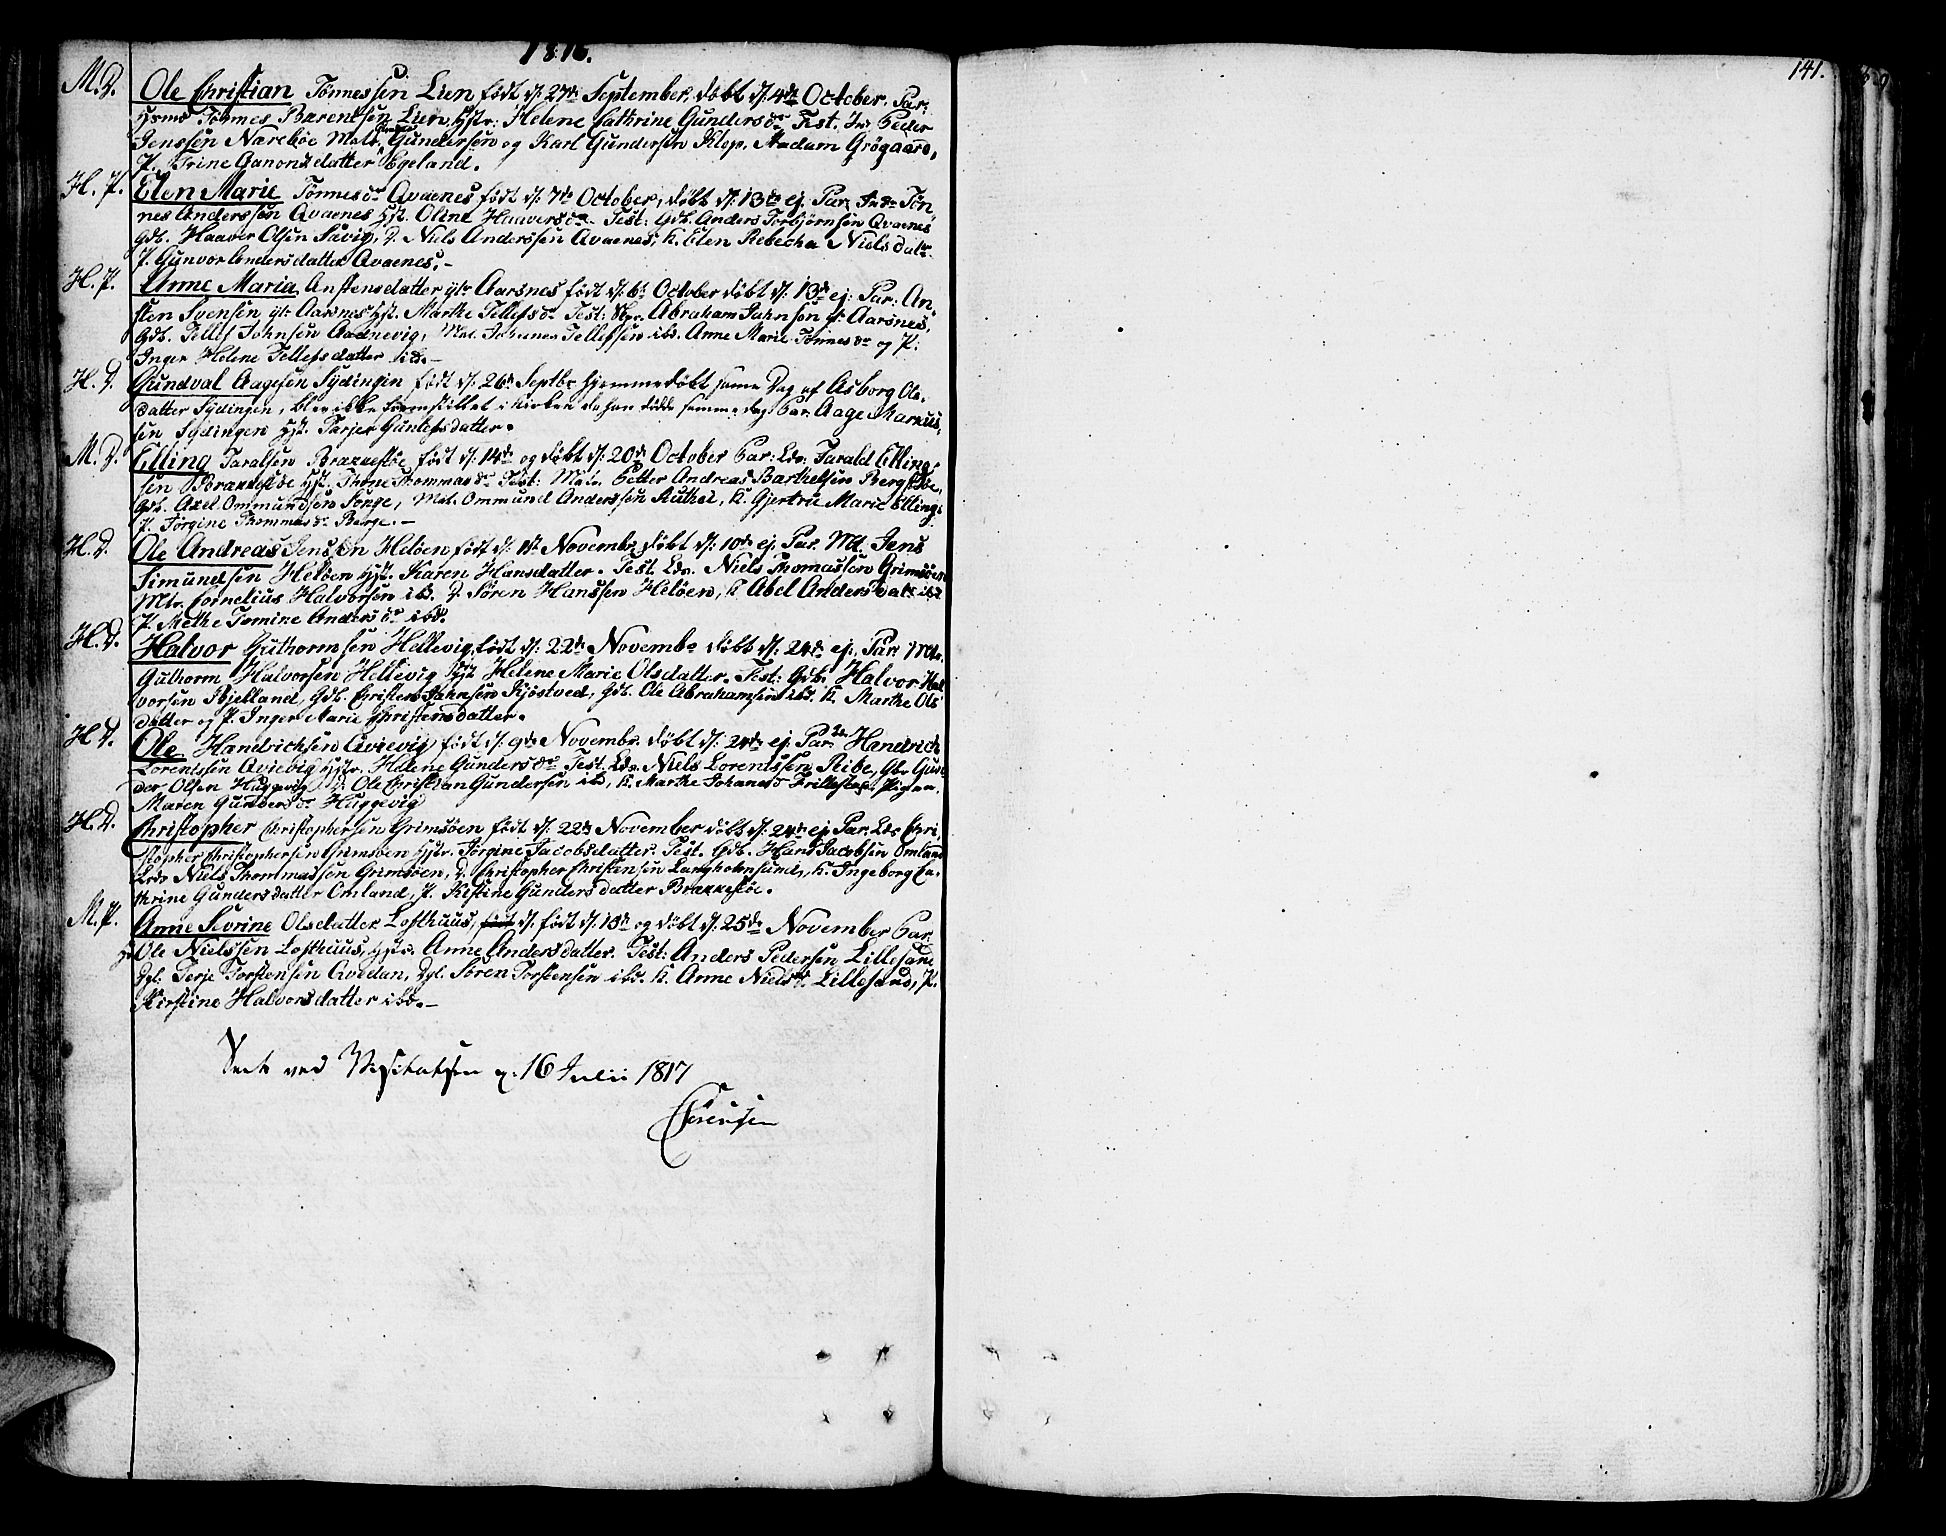 1816.
141.
M. D. Ole Christian Tønnessen Lien født d: 27de September, døbt d: 4de October, Par:
Tønnes Barentsen Lien, Hstr: Helene Cathrine Gundersdr Test. Peder
Jenssen Narebøe Gundersen og Karl Gundersen Klep, Madam Grøgaard,
P. Trine Aanonsdatter Egeland.
H. P. Elen Marie Tønnesdr Qvaenes født d: 7de October, døbt d: 13de ej. Par: Tøn,
nes Anderssen Qvaenes Hst. Oline Haaversdr Test: Gdb. Anders Torbjørnsen Qvaenes
Gdb. Haaver Olsen Savig, D. Niels Anderssen Qvaenes, K. Elen Rebecha Nielsdatr
P. Gunvor Andersdatter Qvaenes.-
H. P. Anne Maria Anstensdatter ytr Aarsnes født d: 6te October døbt d: 13de ej: Par: An,
sten Svensen ytr Aarsnes Hst. Marthe Tellefsdr Test: Abraham Jahnsen yt: Aarsnes,
Gdb. Tellef Johnsen Aaenevig, Mat. Johannes Tellefssen ibd. Anne Marie Tønnesdr og P.
Inger Helene Tellefsdatter ibd.-
H. D. Gundval Aagesen Sydingen født d: 26de Septbr hjemmedøbt samme Dag af Asborg Ols,
datter Sydingen, blev ikke fremstillet i Kirken da han døde samme dag Par. Aage Markus,
sen Sydingen Hst. Tarjer Gunlefsdatter.
M. D. Elling Taralsen Brakkestøe født d: 14de og døbt d: 20de October Par: Lds. Tarald Elling,
sen Brakkestøe Hst. Thone Thommasdr Test: Matr. Petter Andreas Barthelsen Bergstøe,
Gdb. Axel Ommundsen Songe, Mat. Ommund Anderssen K. Gjertru Marie Ellings
P. Jørgine Thommasdr Berge.-
H. D. Ole Andreas Jenssen Heløen født d: 1ste Novembr døbt d: 10de ej. Par. Md. Jens
Simundsen Heløen Hst. Karen Hansdatter. Test. Lds. Niels Thomassen Grimsøen
Mtr. Cornelius Halvorsen ibd. D. Søren Hanssen Heløen, K. Abel Andersdatr ibd
P. Methe Tomine Andersdr ibd.
H. D. Halvor Guthormsen Hellevig, født d: 22de Novembr døbt d: 24de ej, Par: Mtr.
Guthorm Halvorsen Hellevig Hst Helene Marie Olsdatter. Test: Gdb. Halvor Hal
vorsen Kjelland, Gdb. Christen Jahnsen Kjøstved, Gdb. Ole Abrahamsen ibd. K. Marthe Ols
datter og P. Inger Marie Christensdatter.
H. D. Ole Handrichsen Qvievig, født d: 9de Novembr. døbt d: 24de ej. Par. Handrich
Lorentssen Qviebig Hstr. Helene Gundersdr Test. Lds. Niels Lorentssen Reibe, Gbr Gun
der Olsen Huggevig D. Ole Christian Gundersen ibd, K. Marthe Johansdr Pigen
Maren Gundersdr Huggevig
H. D. Christopher Christophersen Grimsøen født d: 22de November døbt d: 24de ej Par. Lds Chri,
stopher Christophersen Grimsøen Hstr. Jørgine Jacobsdatter. Test. Gdb. Hans Jacobsen Omland
Lds Niels Thommassen Grimsøen, D. Christopher Christensen Langholmsund, K. Ingeborg Ca,
thrine Gundersdatter Omland, P. Kistine Gundersdatter Brakkestøe.
M. P. Anne Severine Olsdatter Lofthuus, født d. født d: 18de og døbt d: 25de November Par.
Ole Nielssen Lofthuus, Hstr. Anne Andersdatter. Test: Anders Pedersen Lillesand
Terje Torstensen Qvedan, Søren Torstensen ibd. K. Anne Nielsdr Lillesand, P.
Kirstine Halvorsdatter ibd.-
Seet ved Visitatsen d. 16 Julii 1817
Sørensen